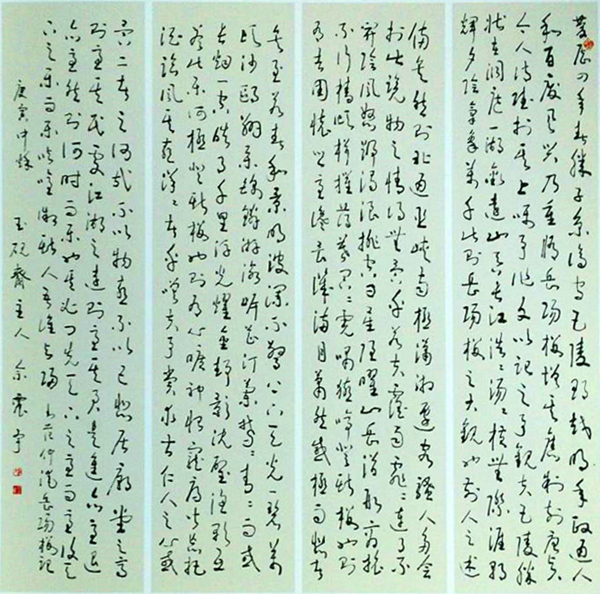 慶曆四年春滕子京謫守巴陵郡越明年政通人
和百廢具興乃重修岳陽樓增其舊制刻唐賢
今人詩賦於其上囑予作文以記之予觀夫巴陵勝
狀在洞庭一湖銜遠山吞長江浩浩湯湯橫無際涯朝
輝夕陰氣象萬千此則岳陽樓之大觀也前人之述
備矣然則北通巫峽南極瀟湘遷客騷人多會
於此覽物之情得無異乎若夫霪雨霏霏連月不
開陰風怒號濁浪排空日星隱曜山岳潛形商旅
不行檣傾楫摧薄暮冥冥虎嘯猿啼登斯樓也則
有去國懷鄉憂讒畏譏滿目蕭然感極而悲者
矣至若春和景明波瀾不驚上下天光一碧萬
頃沙鷗翔集錦鱗游泳岸芷汀蘭郁郁青青而或
長煙一空皓月千里浮光耀金靜影沈璧漁歌互
答此樂何極登斯樓也則有心曠神怡寵辱皆忘把
酒臨風其喜洋洋者矣嗟夫予嘗求古仁人之心或
異二者之為何哉不以物喜不以己悲居廟堂之高
則憂其民處江湖之遠則憂其君是進亦憂退
亦憂然則何時而樂耶其必曰先天下之憂而憂後天
下之樂而樂歟噫微斯人吾誰與歸 范仲淹岳陽樓記
庚寅仲秋 玉硯齋主人 余震宇